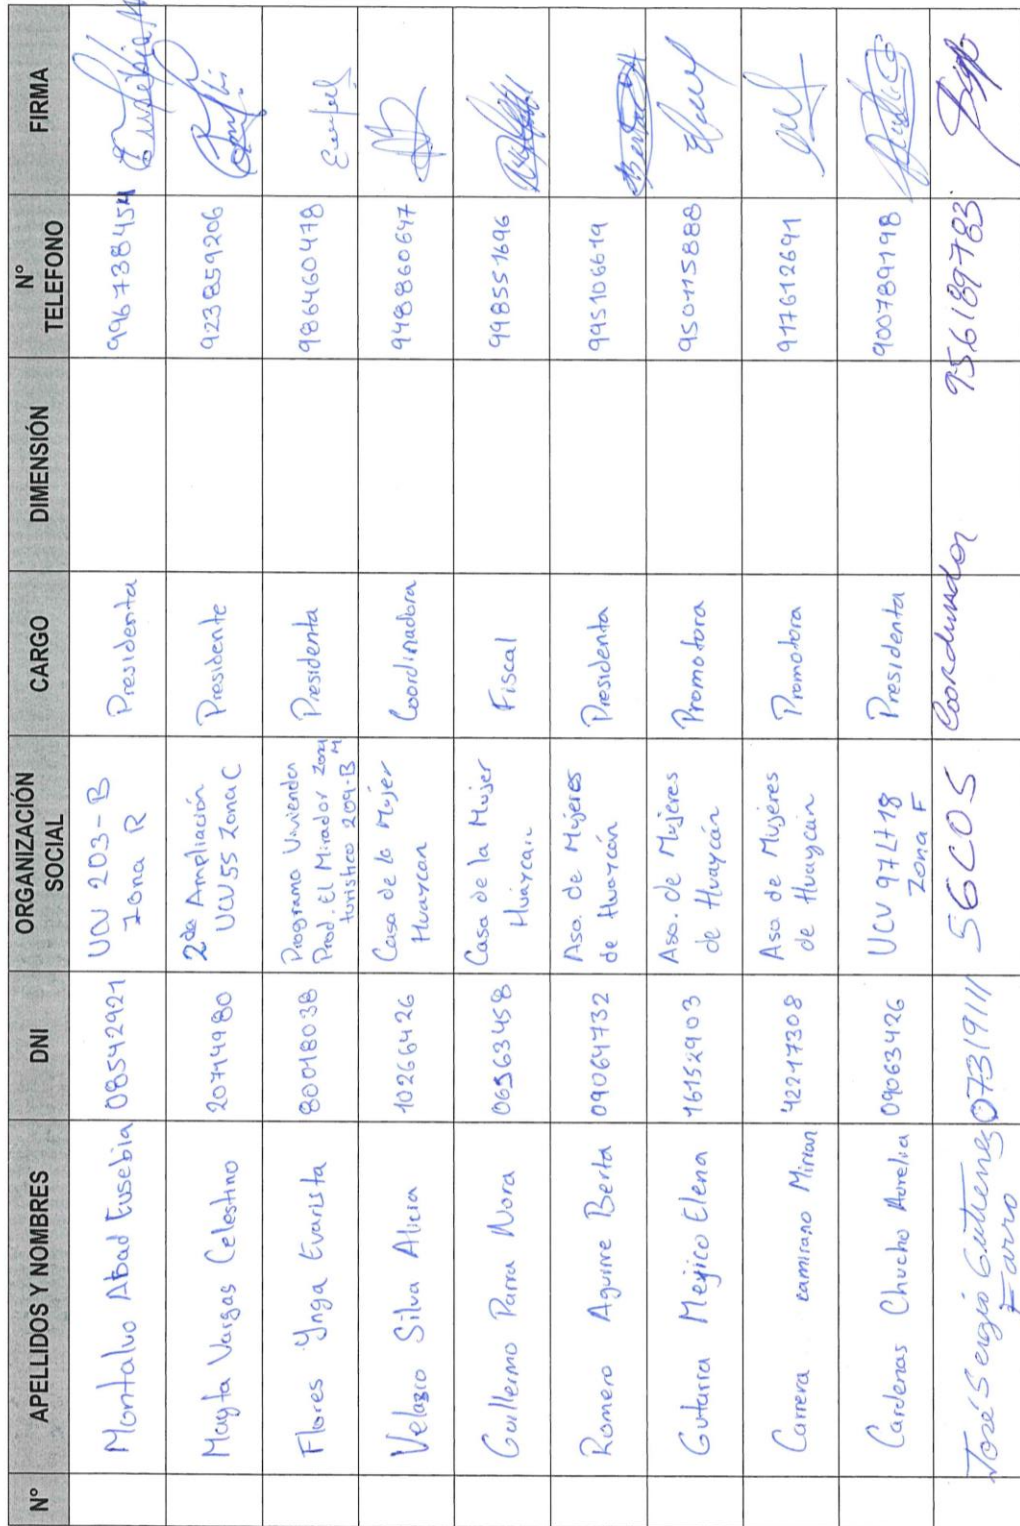 N° APELLIDOS Y NOMBRES DNI ORGANIZACIÓN SOCIAL CARGO DIMENSIÓN N° TELEFONO FIRMA
Montalvo Abad Eusebia 08542921 UCV 203-B Zona R Presidenta 996738454
Mayta Vargas Celestino 20714980 2da Ampliación UCV 55 Zona C Presidente 923859206
Flores Ynga Evarista 80018038 Programa Viviendas Prod. El Mirador turistico 209-B Presidenta 986460478
Velazco Silva Alicia 10266426 Casa de la Mujer Huaycan Coordinadora 948860647
Guillermo Parra Nora 06963458 Casa de la Mujer Huaycan Fiscal 998551696
Romero Aguirre Berta 09064732 Aso. de Mujeres de Huaycán Presidenta 995106619
Gutarra Mejico Elena 16152903 Aso. de Mujeres de Huaycán Promotora 950115888
Carrera camirano Mirian 42217308 Aso de Mujeres de Huaycan Promotora 917612691
Cardenas Chucho Aurelia 09063426 UCV 97 Lt 18 Zona F Presidenta 900789198
José Sergio Gutierrez Farro 07319111 SGCOS Coordinador 956189783